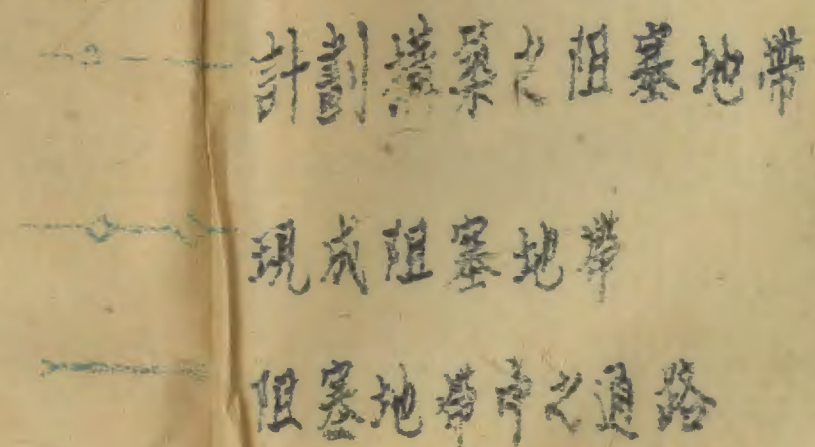 計劃構築之阻塞地帶
現成阻塞地帶
阻塞地帶中之通路